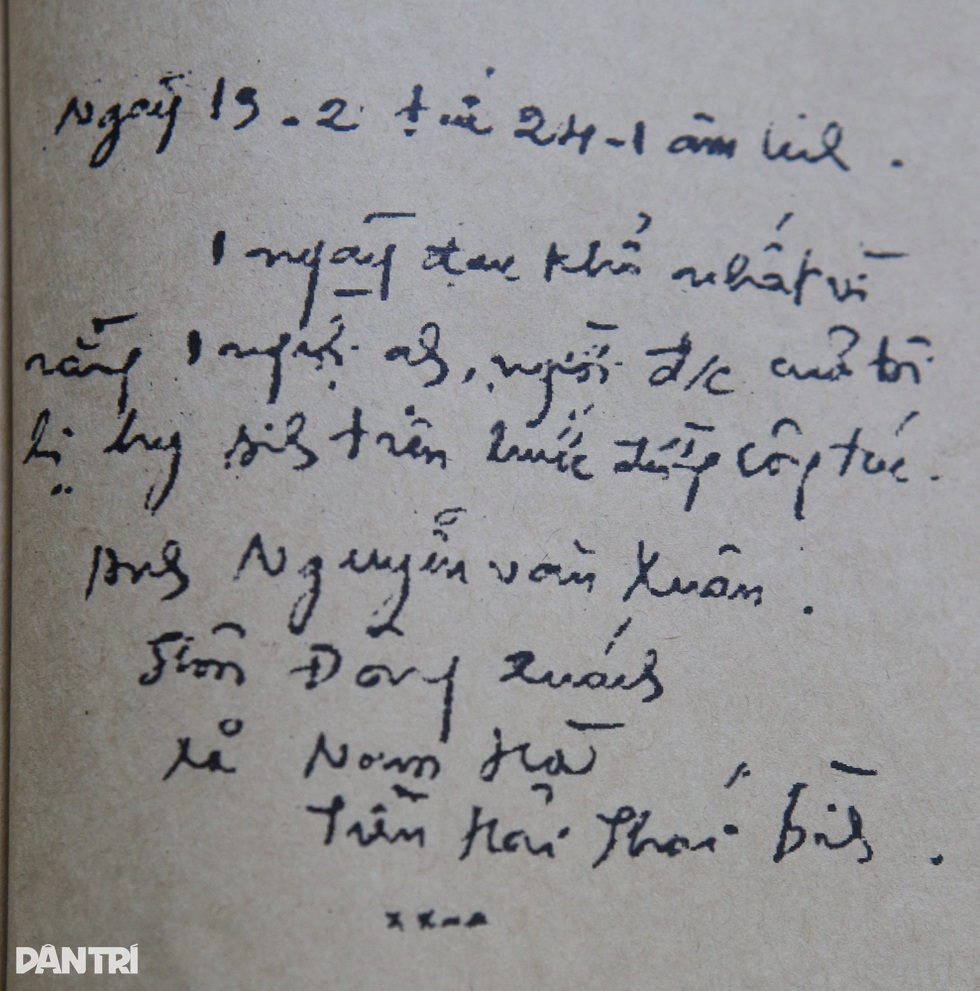 Ngày 19.2 tức 24-1 âm lịch.
1 ngày đau khổ nhất vì
rằng 1 người anh, người đ/c của tôi
bị hy sinh trên bước đường công tác.
Anh Nguyễn văn Xuân.
Thôn Đông Quách
xã Nam Hà
Tiền Hải Thái Bình.
DÂN TRÍ